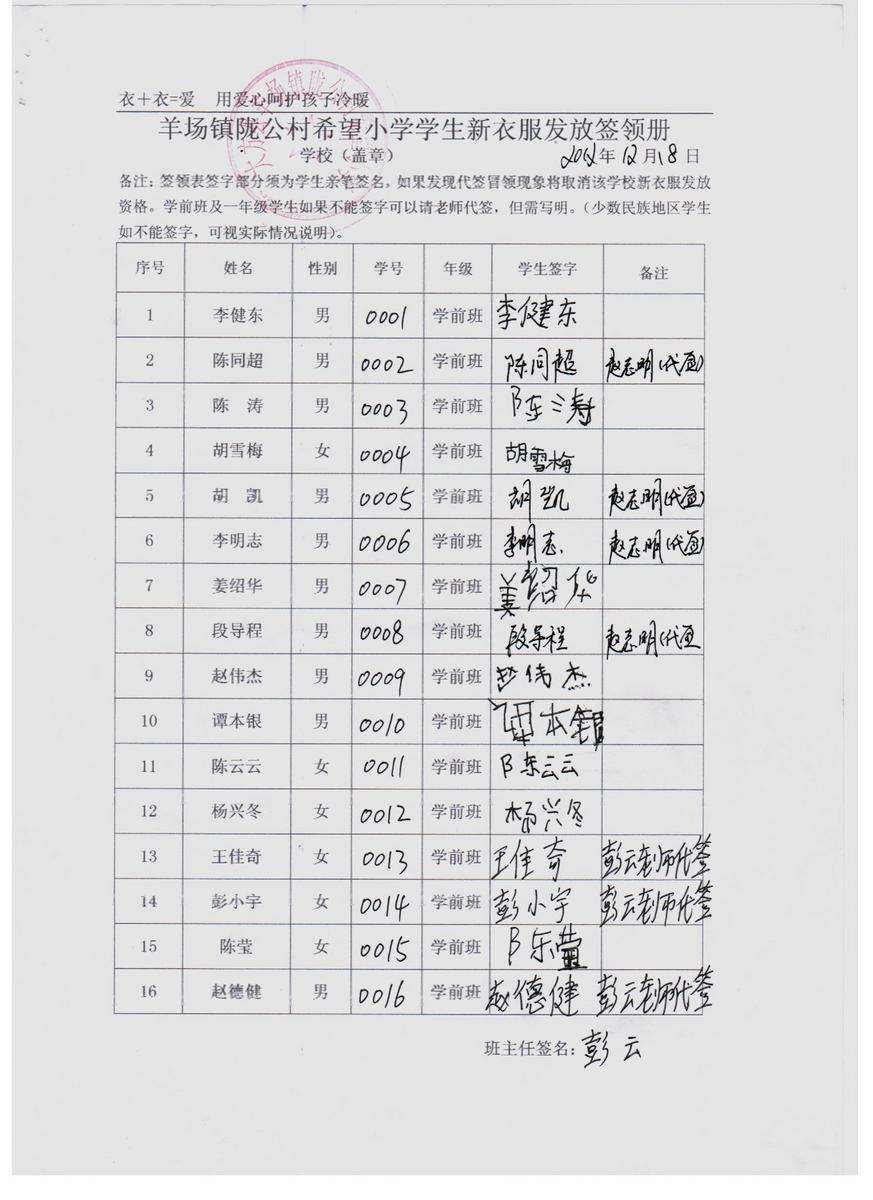 衣+衣=爱 用爱心呵护孩子冷暖
羊场镇陇公村希望小学学生新衣服发放签领册
学校（盖章） 2012年12月18日
备注：签领表签字部分须为学生亲笔签名，如果发现代签冒领现象将取消该学校新衣服发放
资格。学前班及一年级学生如果不能签字可以请老师代签，但需写明。（少数民族地区学生
如不能签字，可视实际情况说明）。
序号 姓名 性别 学号 年级 学生签字 备注
1 李健东 男 0001 学前班 李健东
2 陈同超 男 0002 学前班 陈同超 赵志明(代签)
3 陈 涛 男 0003 学前班 陈涛
4 胡雪梅 女 0004 学前班 胡雪梅
5 胡 凯 男 0005 学前班 胡凯 赵志明(代签)
6 李明志 男 0006 学前班 李明志 赵志明(代签)
7 姜绍华 男 0007 学前班 姜绍华
8 段导程 男 0008 学前班 段导程 赵志明(代签
9 赵伟杰 男 0009 学前班 赵伟杰
10 谭本银 男 0010 学前班 谭本银
11 陈云云 女 0011 学前班 陈云云
12 杨兴冬 女 0012 学前班 杨兴冬
13 王佳奇 女 0013 学前班 王佳奇 彭云老师代签
14 彭小宇 女 0014 学前班 彭小宇 彭云老师代签
15 陈莹 女 0015 学前班 陈莹
16 赵德健 男 0016 学前班 赵德健 彭云老师代签
班主任签名：彭云